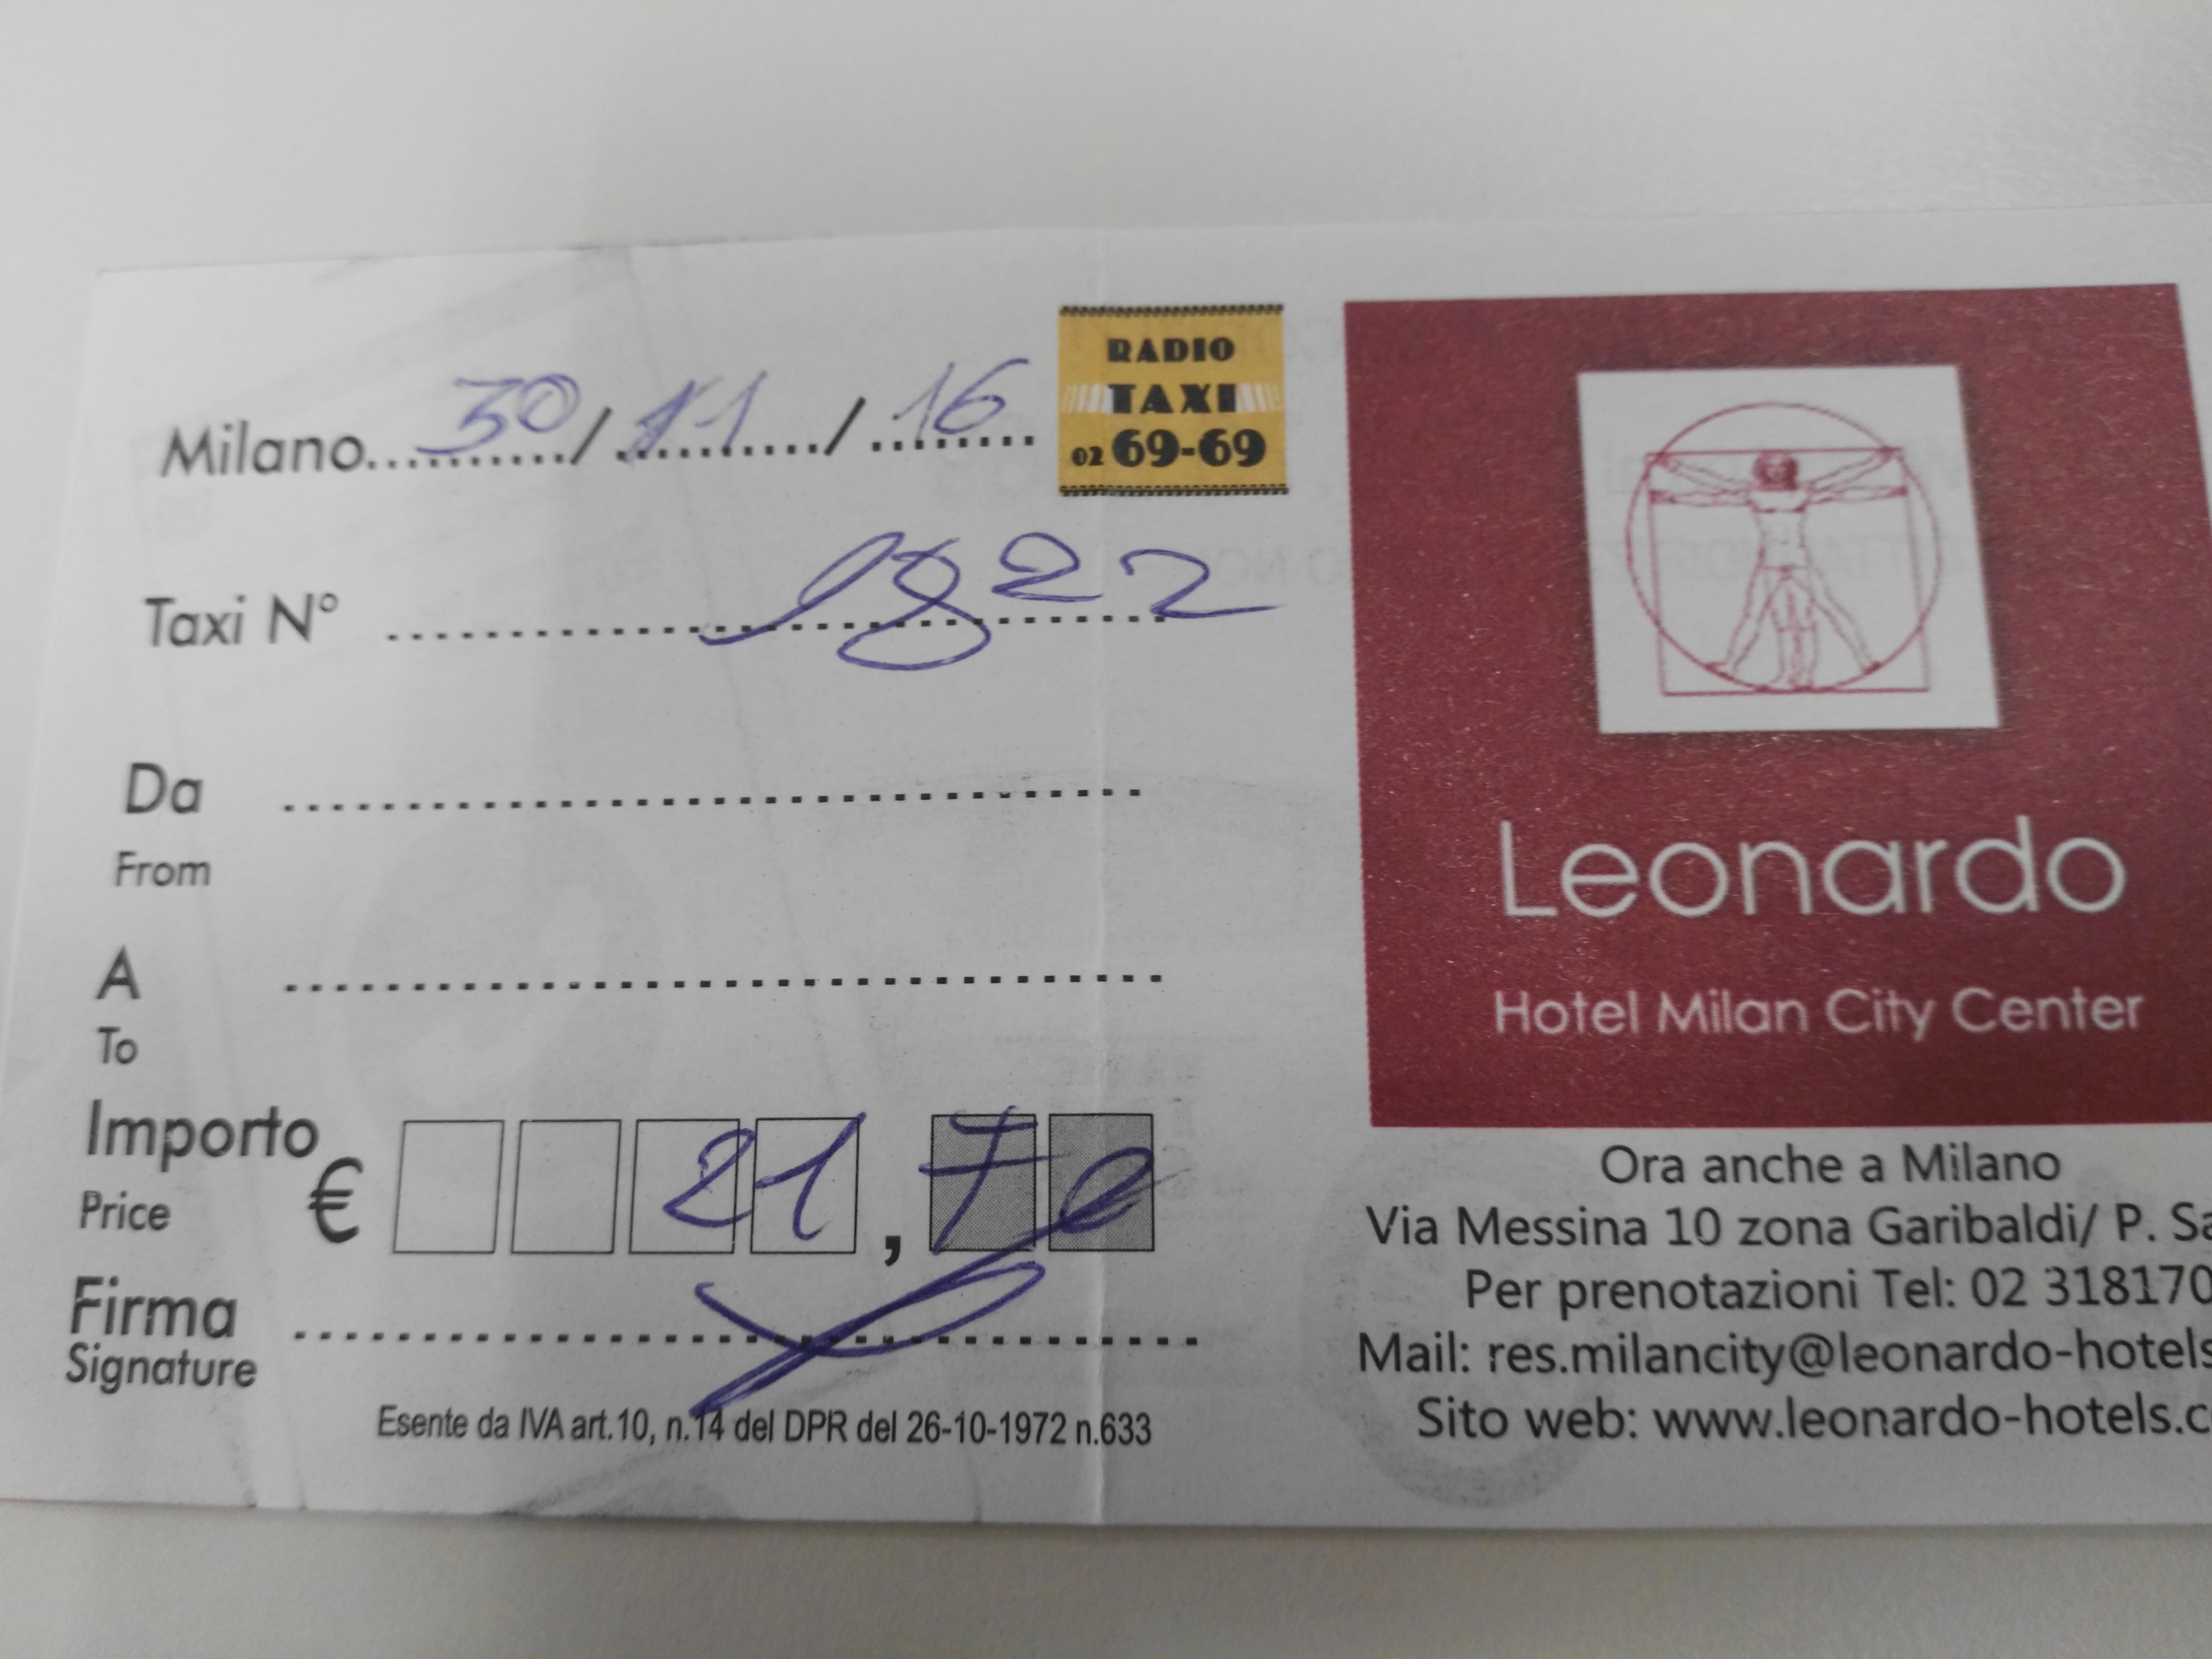 Milano 30 / 11 / 16
RADIO
TAXI
02 69-69
Taxi N° 1822
Da
From
A
To
Importo
Price
€ 21,70
Firma
Signature
Esente da IVA art.10, n.14 del DPR del 26-10-1972 n.633
Leonardo
Hotel Milan City Center
Ora anche a Milano
Via Messina 10 zona Garibaldi/ P. Sa
Per prenotazioni Tel: 02 318170
Mail: res.milancity@leonardo-hotels
Sito web: www.leonardo-hotels.c